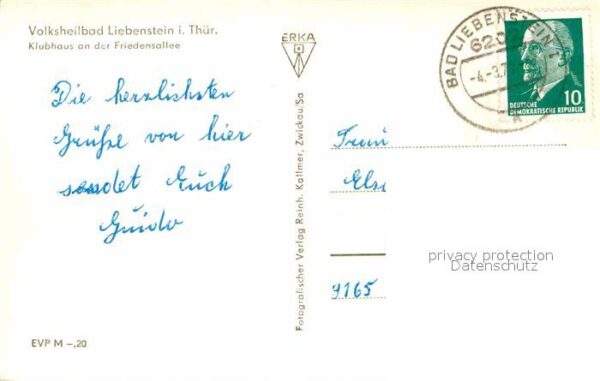 Volksheilbad Liebenstein i. Thür.
Klubhaus an der Friedensallee
Die herzlichsten
Grüße von hier
sendet Euch
Guido
EVP M -,20
ERKA
Fotografischer Verlag Reinh. Kallmer, Zwickau/Sa
BAD LIEBENSTEIN
620
-4.-3.7
10
DEUTSCHE
DEMOKRATISCHE REPUBLIK
Els
9165
privacy protection
Datenschutz